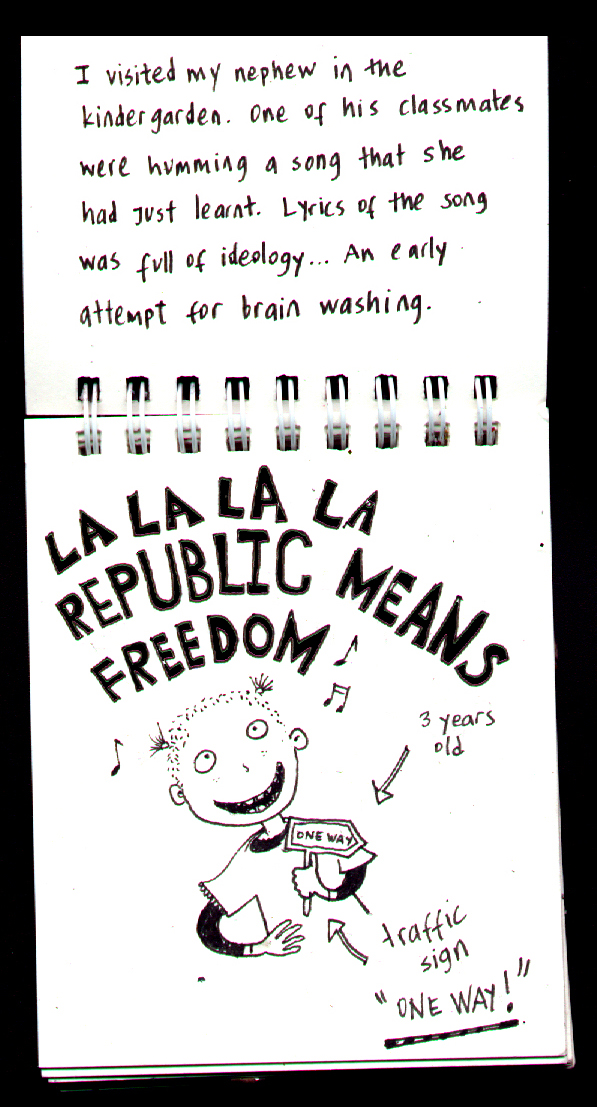 I visited my nephew in the
kindergarden. One of his classmates
were humming a song that she
had just learnt. Lyrics of the song
was full of ideology... An early
attempt for brain washing.
LA LA LA LA
REPUBLIC MEANS
FREEDOM
3 years
old
ONE WAY
traffic
sign
"ONE WAY!"